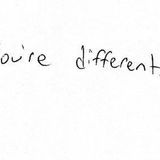 ou're different.